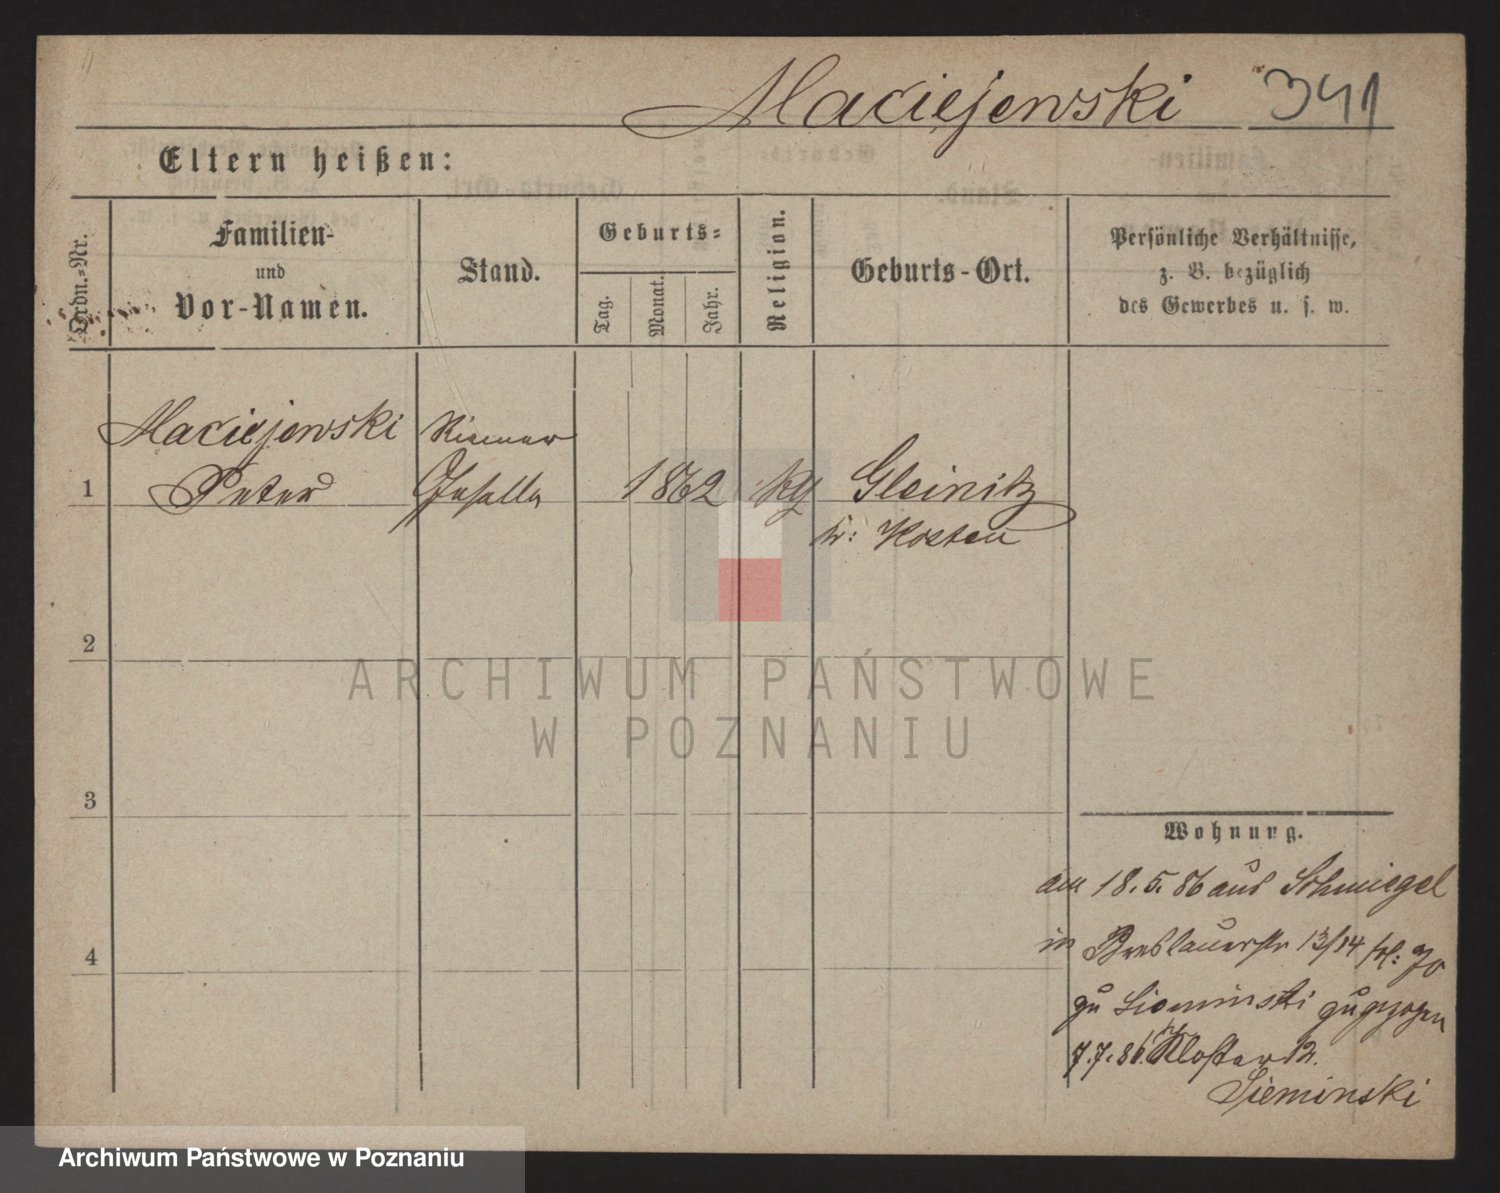 Maciejewski 341
Eltern heißen:
Ordn.=Nr.
Familien-
und
Vor-Namen.
Stand.
Geburts=
Tag.
Monat.
Jahr.
Religion.
Geburts-Ort.
Persönliche Verhältnisse,
z. B. bezüglich
des Gewerbes u. s. w.
Maciejewski Riemer
1 Peter Geselle 1862 Gleinitz
Kr: Kosten
2
3
4
Wohnung.
am 18.5.86 aus Schmiegel
in Breslauerstr 13/14
zu Sieminski zugezogen
7.7.86 Kloster 12.
Sieminski
ARCHIWUM PAŃSTWOWE
W POZNANIU
Archiwum Państwowe w Poznaniu